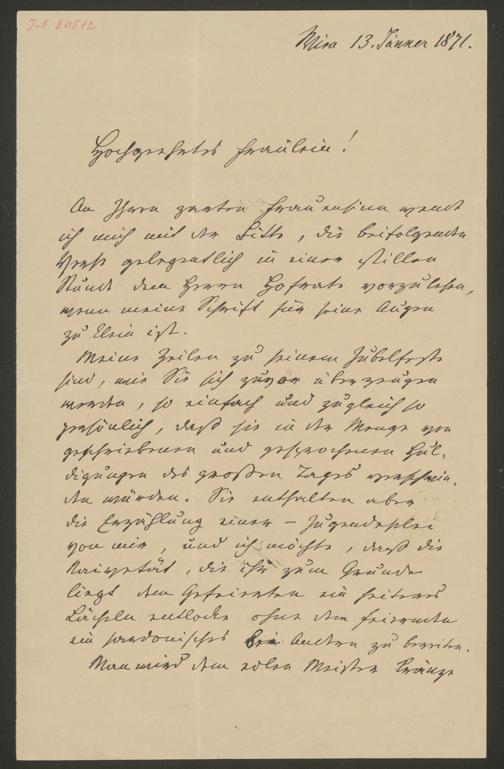 I.N 80512
Wien 13. Jänner 1871.
Hochgeehrtes Fräulein!
An Ihren zarten Frauensinn wende
ich mich mit der Bitte, die beifolgenden
Verse gelegentlich in einer stillen
Stunde dem Herrn Hofrate vorzulesen,
wenn meine Schrift für seine Augen
zu klein ist.
Meine Zeilen zu seinem Jubelfeste
sind, wie Sie sich zuvor überzeugen
werden, so einfach und zugleich so
persönlich, daß sie in der Menge von
geschriebenen und gesprochenen Hul-
digungen des großen Tages verschwin-
den würden. Sie enthalten aber
die Erzählung einer – Jugendeselei
von mir, und ich möchte, daß die
Naivetät, die ihr zum Grunde
liegt dem Gefeierten ein heiteres
Lächeln entlocke ohne dem feiernden
ein sardonisches bei Andern zu bereiten.
Man wird dem edlen Meister Kränze